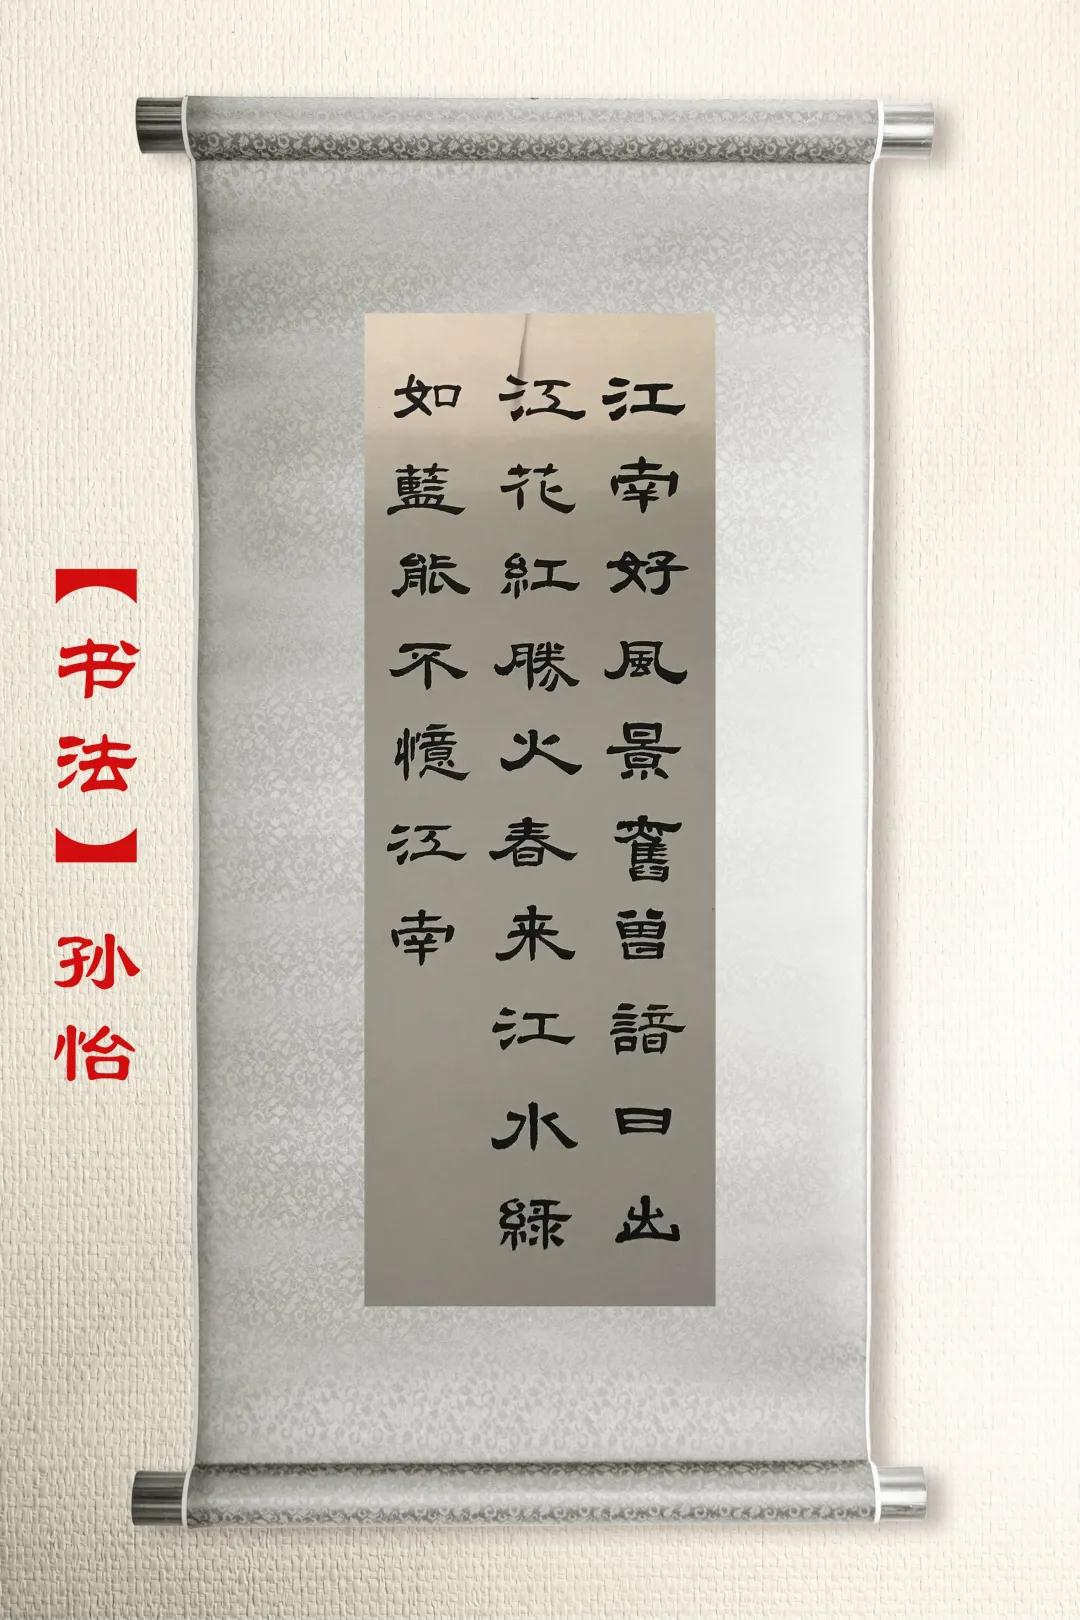 江南好風景舊曾諳日出
江花紅勝火春来江水緑
如藍能不憶江南
【书法】孙怡